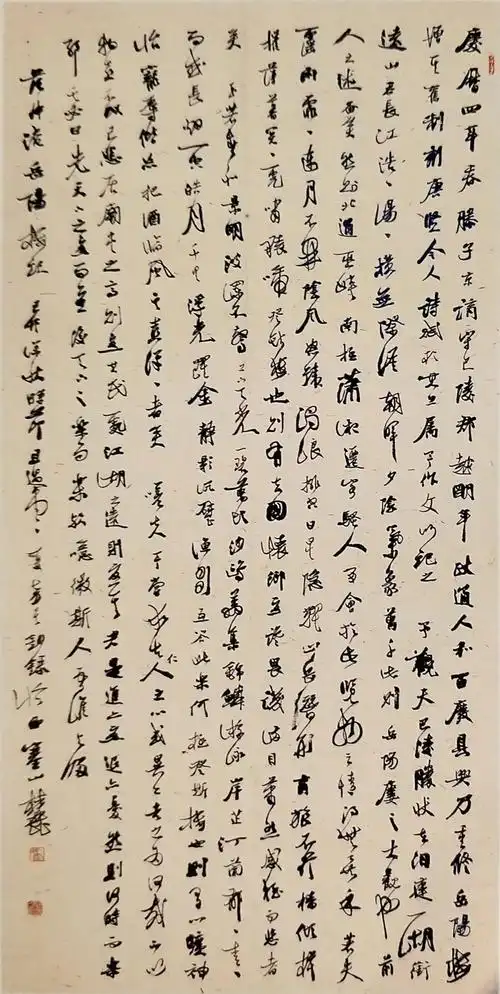 慶曆四年春滕子京謫守巴陵郡越明年政通人和百廢具興乃重修岳陽樓
增其舊制刻唐賢今人詩賦於其上屬予作文以紀之 予觀夫巴陵勝狀在洞庭一湖銜
遠山吞長江浩々湯々橫無際涯朝暉夕陰氣象萬千此則岳陽樓之大觀也前
人之述備矣然則北通巫峽南極瀟湘遷客騷人多會於此覽物之情得無異乎若夫
霪雨霏々連月不開陰風怒號濁浪排空日星隱耀山岳潛形商旅不行檣傾楫
摧薄暮冥々虎嘯猿啼登斯樓也則有去國懷鄉憂讒畏譏滿目蕭然感極而悲者
矣 至若春和景明波瀾不驚上下天光一碧萬頃沙鷗翔集錦鱗游泳岸芷汀蘭郁々青々
而或長煙一空皓月千里浮光躍金靜影沉璧漁歌互答此樂何極登斯樓也則有心曠神
怡寵辱偕忘把酒臨風其喜洋々者矣 嗟夫予嘗求古仁人之心或異二者之為何哉不以
物喜不以己悲居廟堂之高則憂其民處江湖之遠則憂其君是進亦憂退亦憂然則何時而樂
耶其必曰先天下之憂而憂後天下之樂而樂歟噫微斯人吾誰與歸
范仲淹岳陽樓記